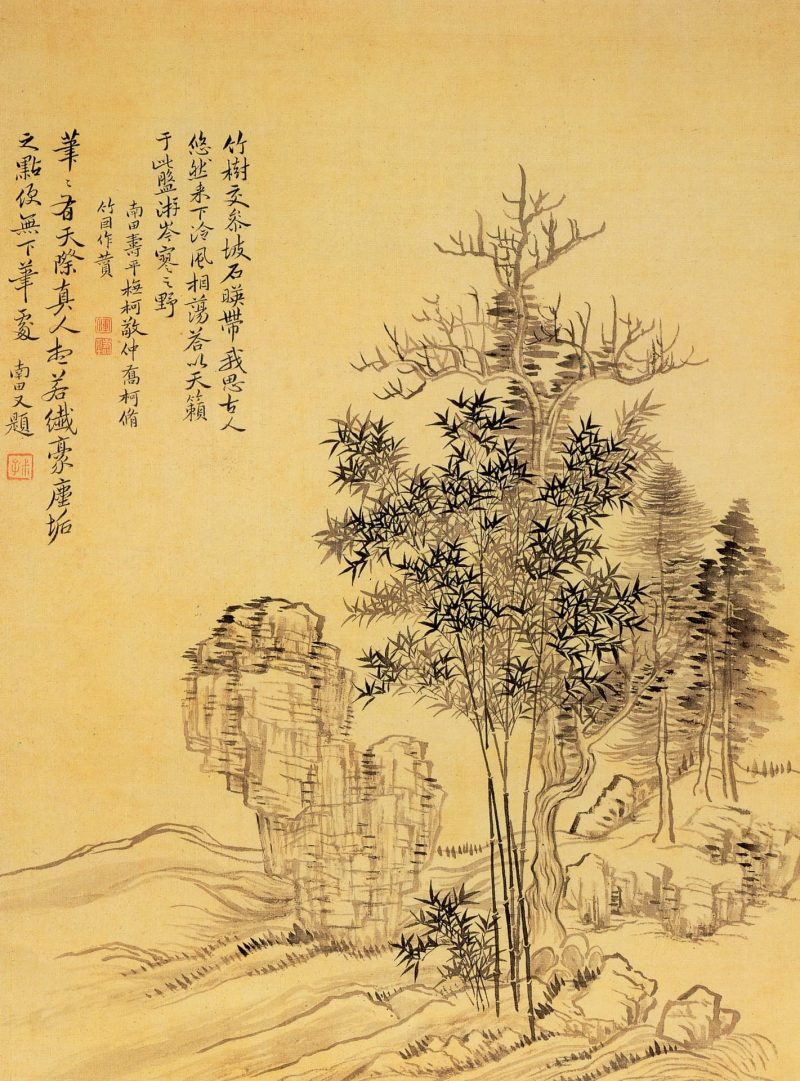 竹樹交參坡石暎帶我思古人
悠然来下泠風相蕩荅以天籟
于此盤游岑寒之野
南田壽平橅柯敬仲喬柯脩
竹自作蕢
筆〻有天際真人想若纖豪塵垢
之點便無下筆處
南田又題